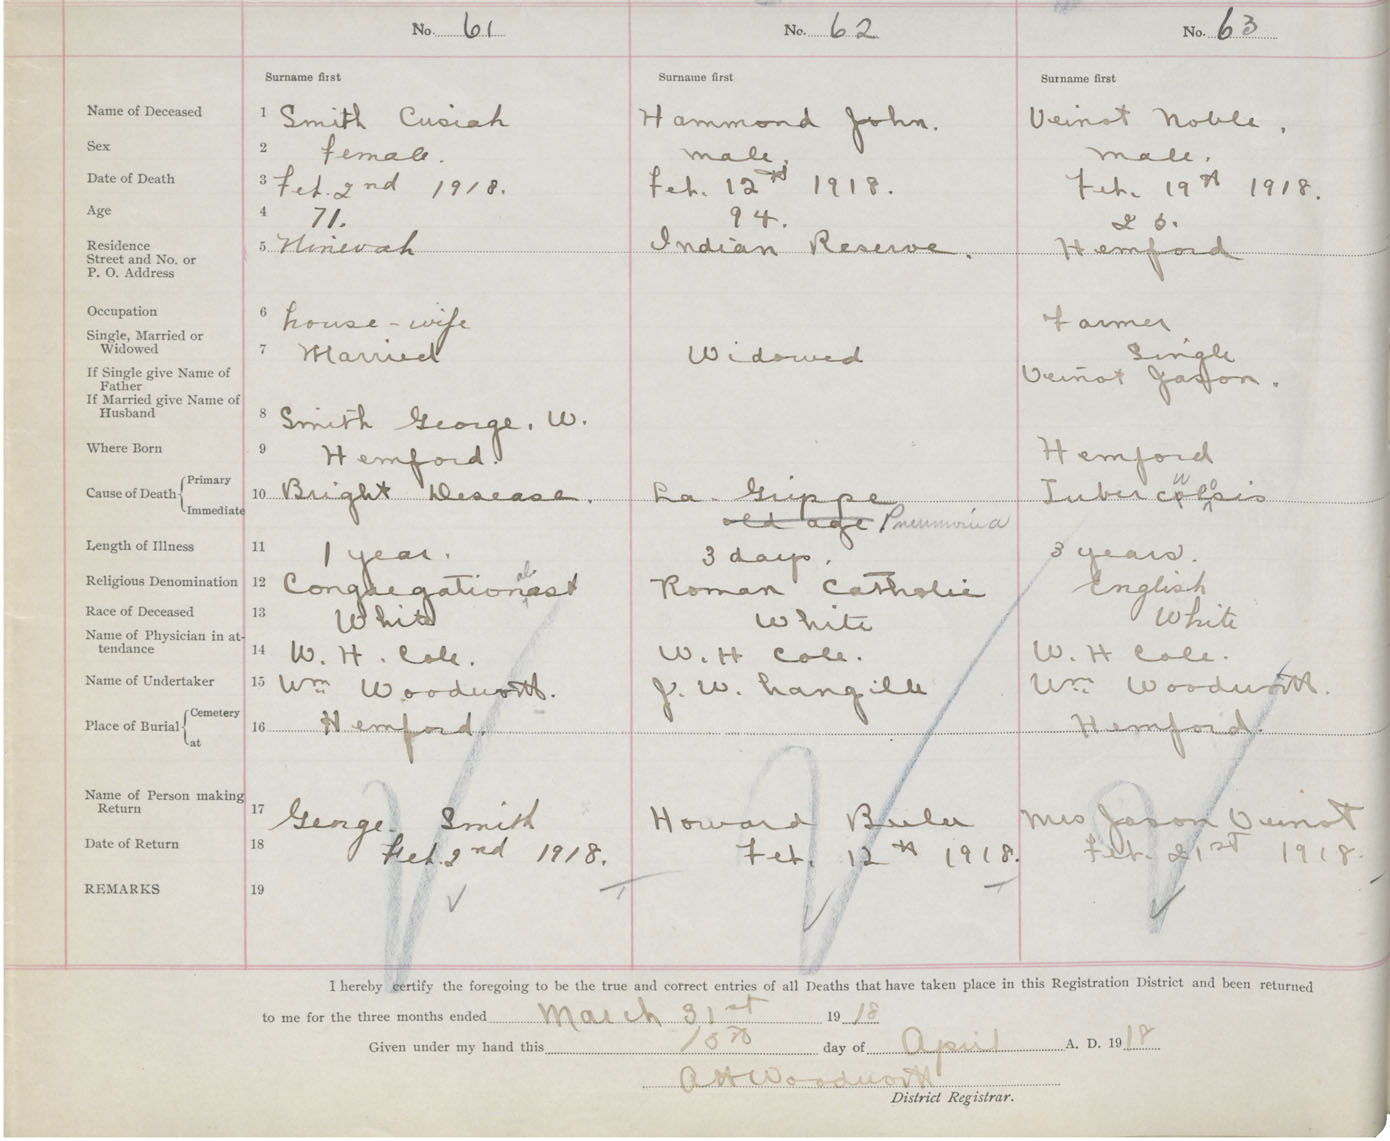 No. 61 No. 62 No. 63
Surname first Surname first Surname first
Name of Deceased 1 Smith Cusiah Hammond John. Veinot Noble.
Sex 2 female. male. male.
Date of Death 3 Feb. 2nd 1918. Feb. 12th 1918. Feb. 19th 1918.
Age 4 71. 94.
Residence 5 Ninevah Indian Reserve. Hemford
Street and No. or
P. O. Address
Occupation 6 house-wife Farmer
Single, Married or
Widowed 7 Married Widowed Single
If Single give Name of Veinot Jason.
Father
If Married give Name of
Husband 8 Smith George. W.
Where Born 9 Hemford. Hemford
Primary
Cause of Death 10 Bright Desease. La Grippe Tuberculosis
Immediate old age Pneumonia
Length of Illness 11 1 year. 3 days. 3 years.
Religious Denomination 12 Congregationalist Roman Catholic English
Race of Deceased 13 White White White
Name of Physician in at-
tendance 14 W. H. Cole. W. H Cole. W. H Cole.
Name of Undertaker 15 Wm Woodworth. J. W. Langille Wm Woodworth.
Cemetery
Place of Burial 16 Hemford. Hemford.
at
Name of Person making
Return 17 George Smith Howard Mrs Jason Veinot
Date of Return 18 Feb. 2nd 1918. Feb. 12th 1918. Feb. 21st 1918.
REMARKS 19
I hereby certify the foregoing to be the true and correct entries of all Deaths that have taken place in this Registration District and been returned
to me for the three months ended March 31st 1918
Given under my hand this day of April A. D. 1918
A H Woodworth
District Registrar.